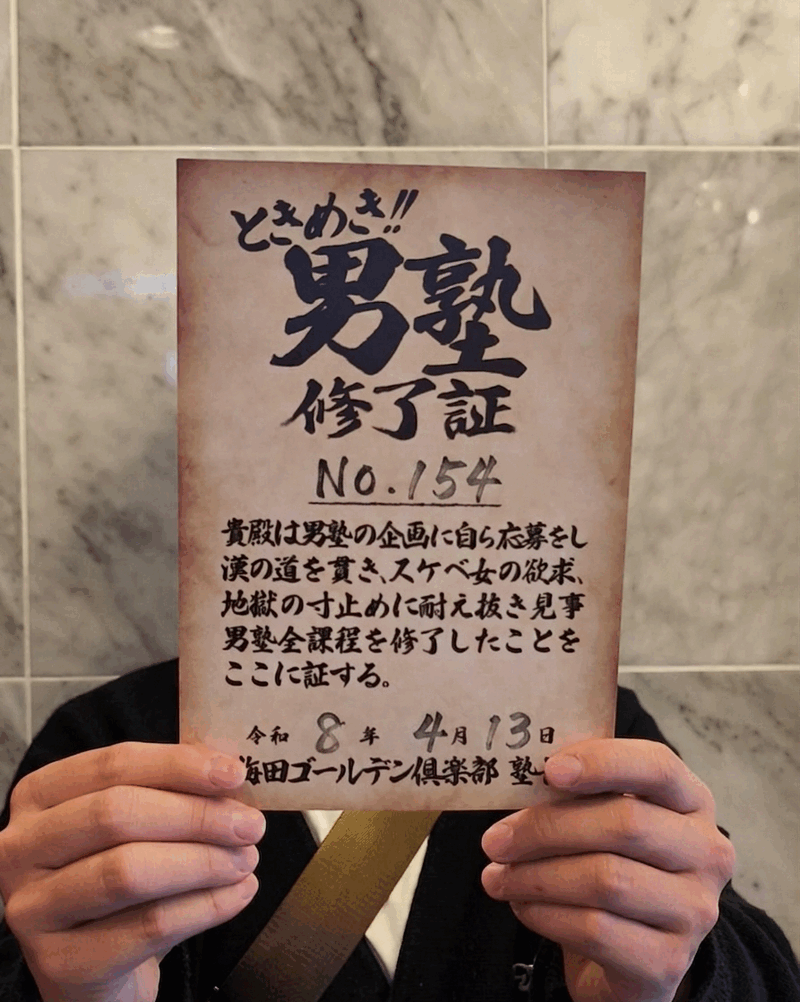 ときめき!!
男塾
修了証
No.154
貴殿は男塾の企画に自ら応募をし
漢の道を貫き、スケベ女の欲求、
地獄の寸止めに耐え抜き見事
男塾全課程を修了したことを
ここに証する。
令和 8 年 4月 13日
梅田ゴールデン倶楽部 塾